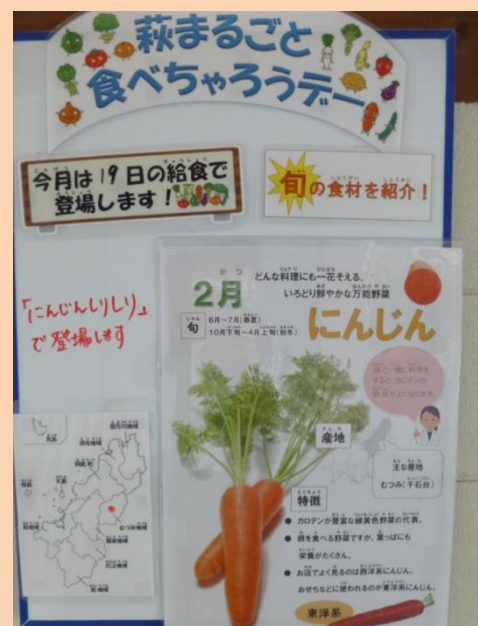 萩まるごと
食べちゃろうデー
今月は19日の給食で
登場します！
旬の食材を紹介！
「にんじんしりしり」
で登場します
2月
どんな料理にも一花そえる、
いろどり鮮やかな万能野菜
にんじん
旬
6月～7月(春夏)
10月下旬～4月上旬(秋冬)
油と一緒に料理を
すると、カロテンの
吸収がよくなります。
産地
主な産地
むつみ(千石台)
特徴
● カロテンが豊富な緑黄色野菜の代表。
● 根を食べる野菜ですが、葉っぱにも
栄養がたくさん。
● お店でよく見るのは西洋系にんじん。
おせちなどに使われるのが東洋系にんじん。
東洋系
須佐地域
むつみ地域
川上地域